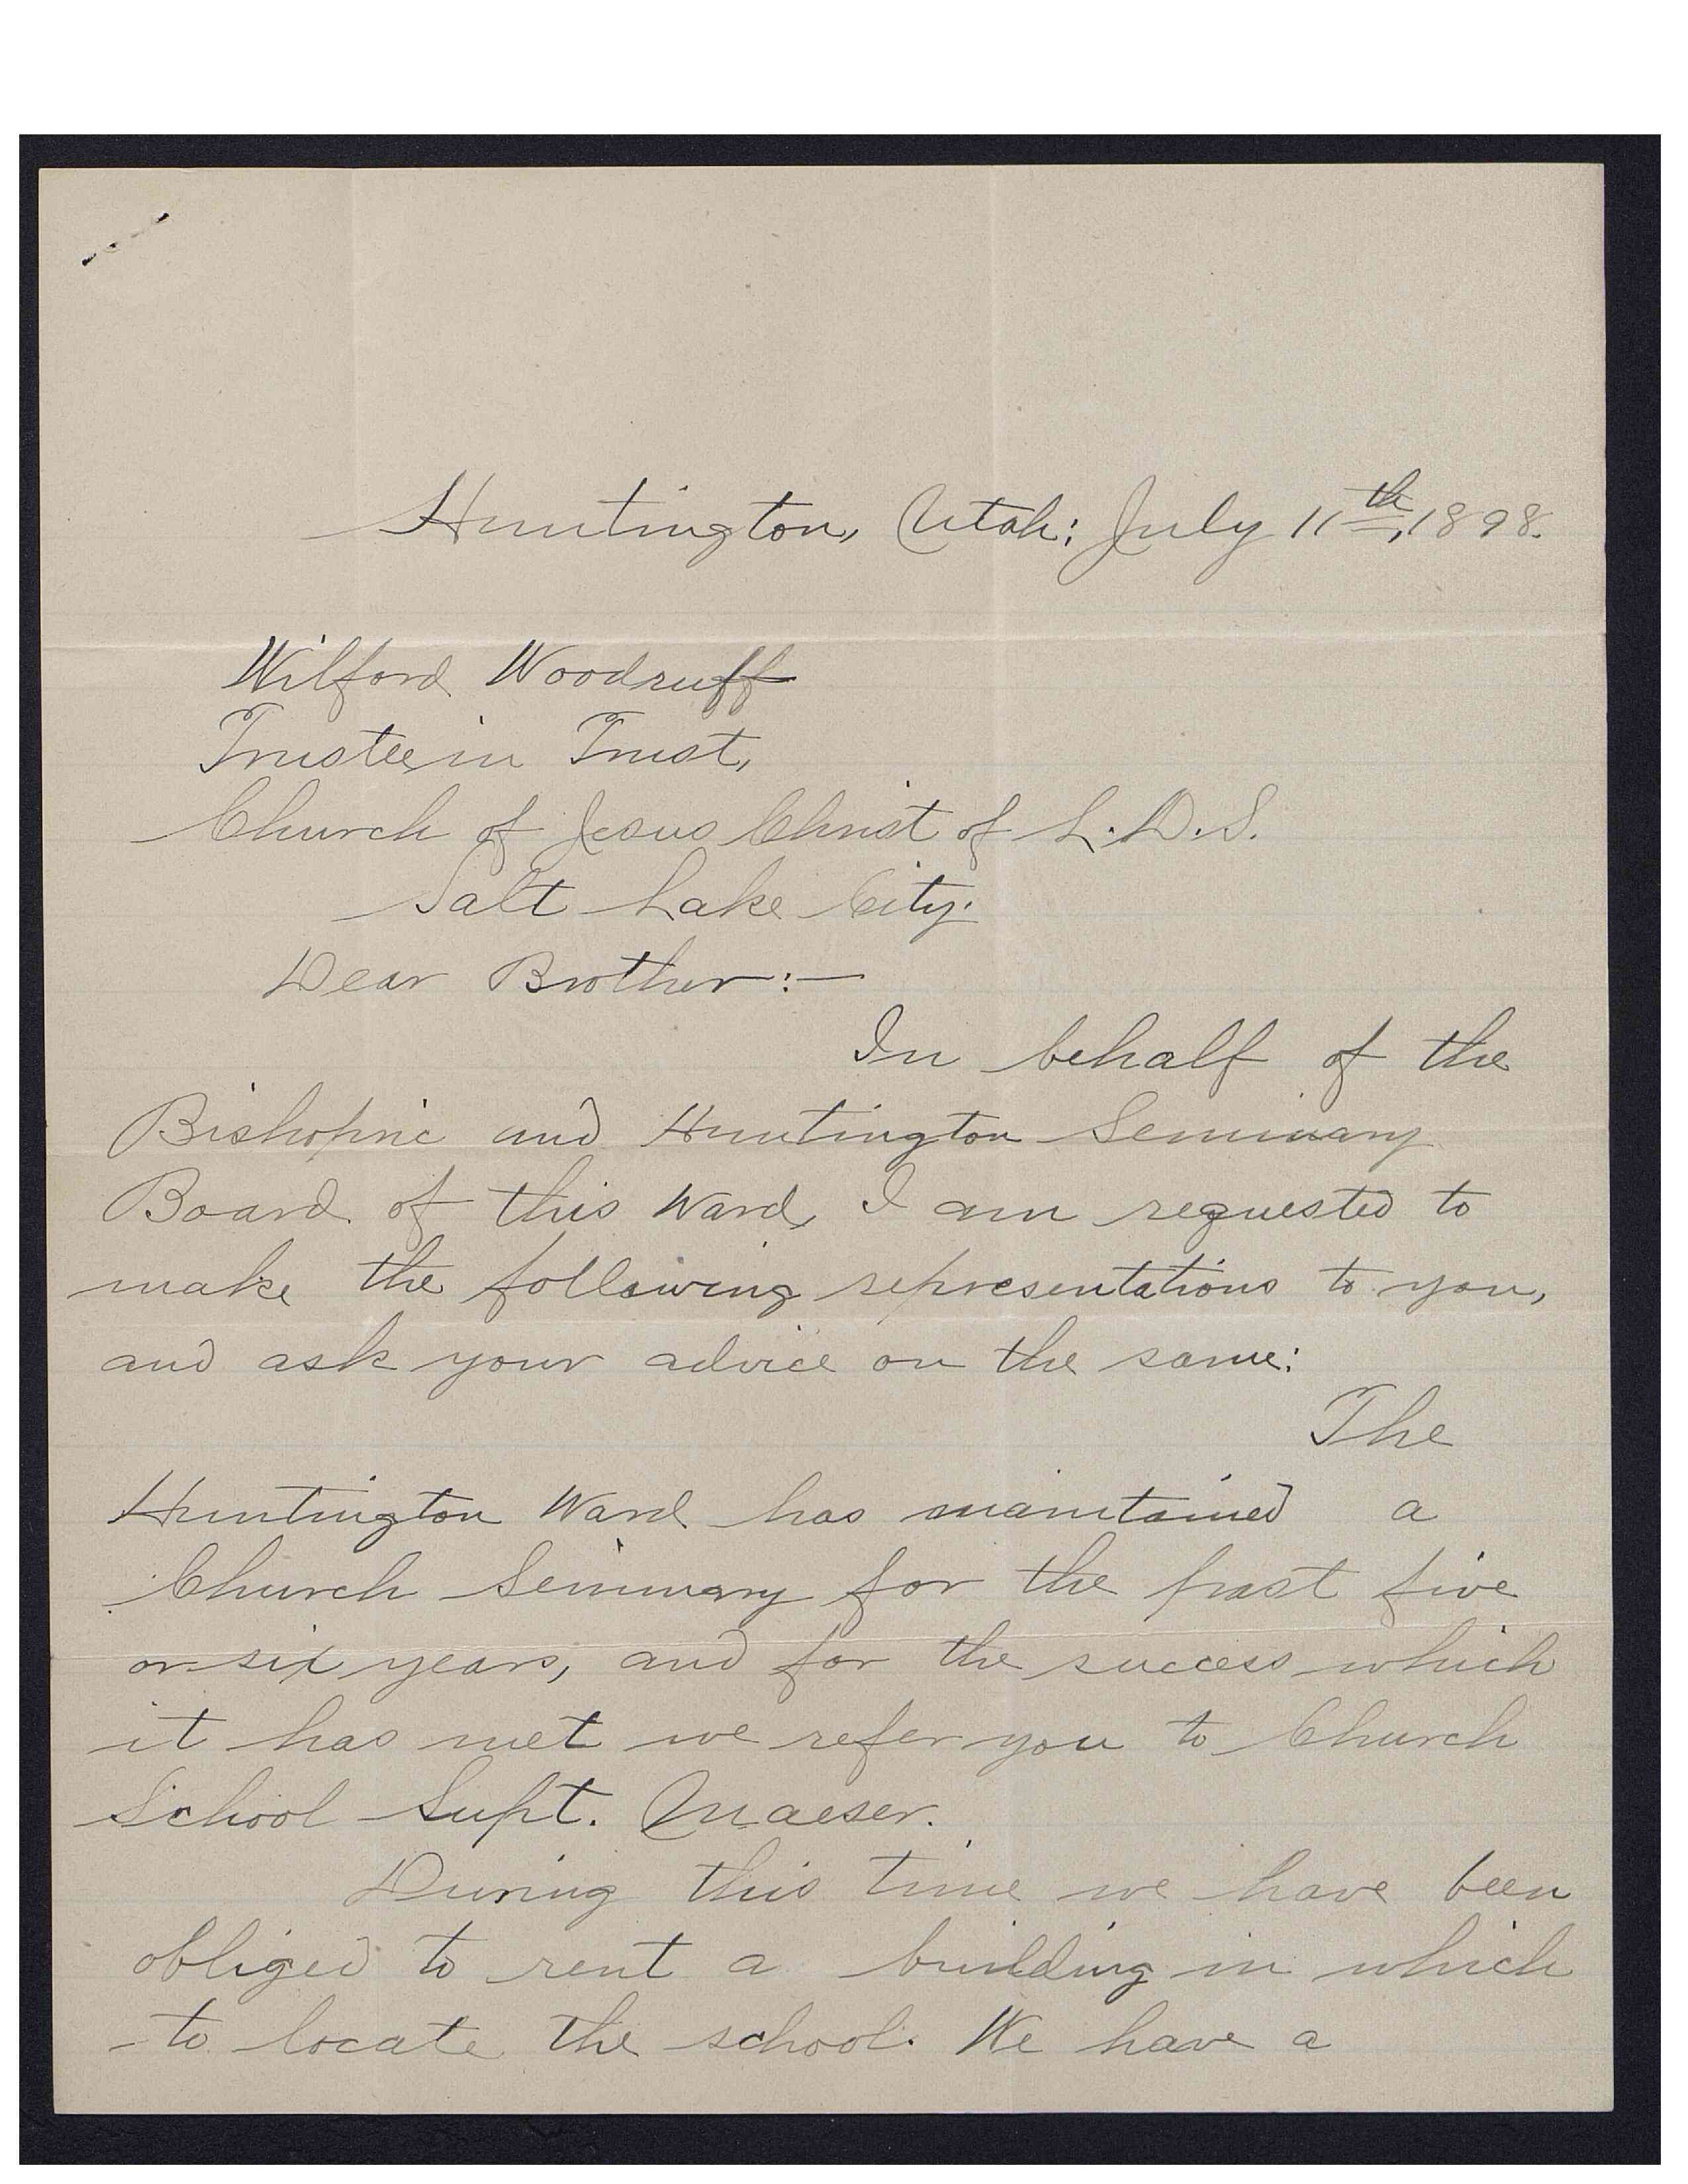 Huntington, Utah; July 11th, 1898.
Wilford Woodruff
Trustee in Trust,
Church of Jesus Christ of L.D.S.
Salt Lake City.
Dear Brother:—
In behalf of the
Bishopric and Huntington Seminary
Board of this Ward, I am requested to
make the following representations to you,
and ask your advice on the same:
The
Huntington Ward has maintained a
Church Seminary for the past five
or six years, and for the success which
it has met we refer you to Church
School Supt. Maeser.
During this time we have been
obliged to rent a building in which
to locate the school. We have a